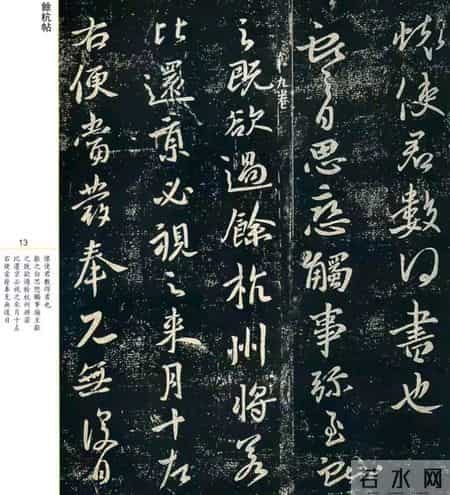 懷使君數得書也
獻之白思戀觸事彌至獻
九卷
之既欲過餘杭州將若
比還京必視之來月十左
右便當發奉見無復日
餘杭帖
13
懷使君數得書也
獻之白思戀觸事彌至獻
之既欲過餘杭州將若
比還京必視之來月十左
右便當發奉見無復日
若水网